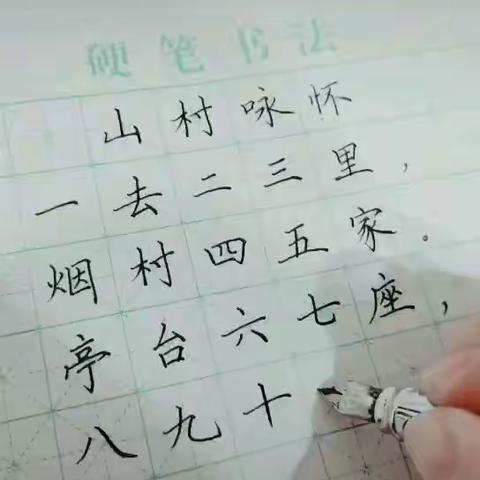 硬笔书法
山村咏怀
一去二三里，
烟村四五家。
亭台六七座，
八九十